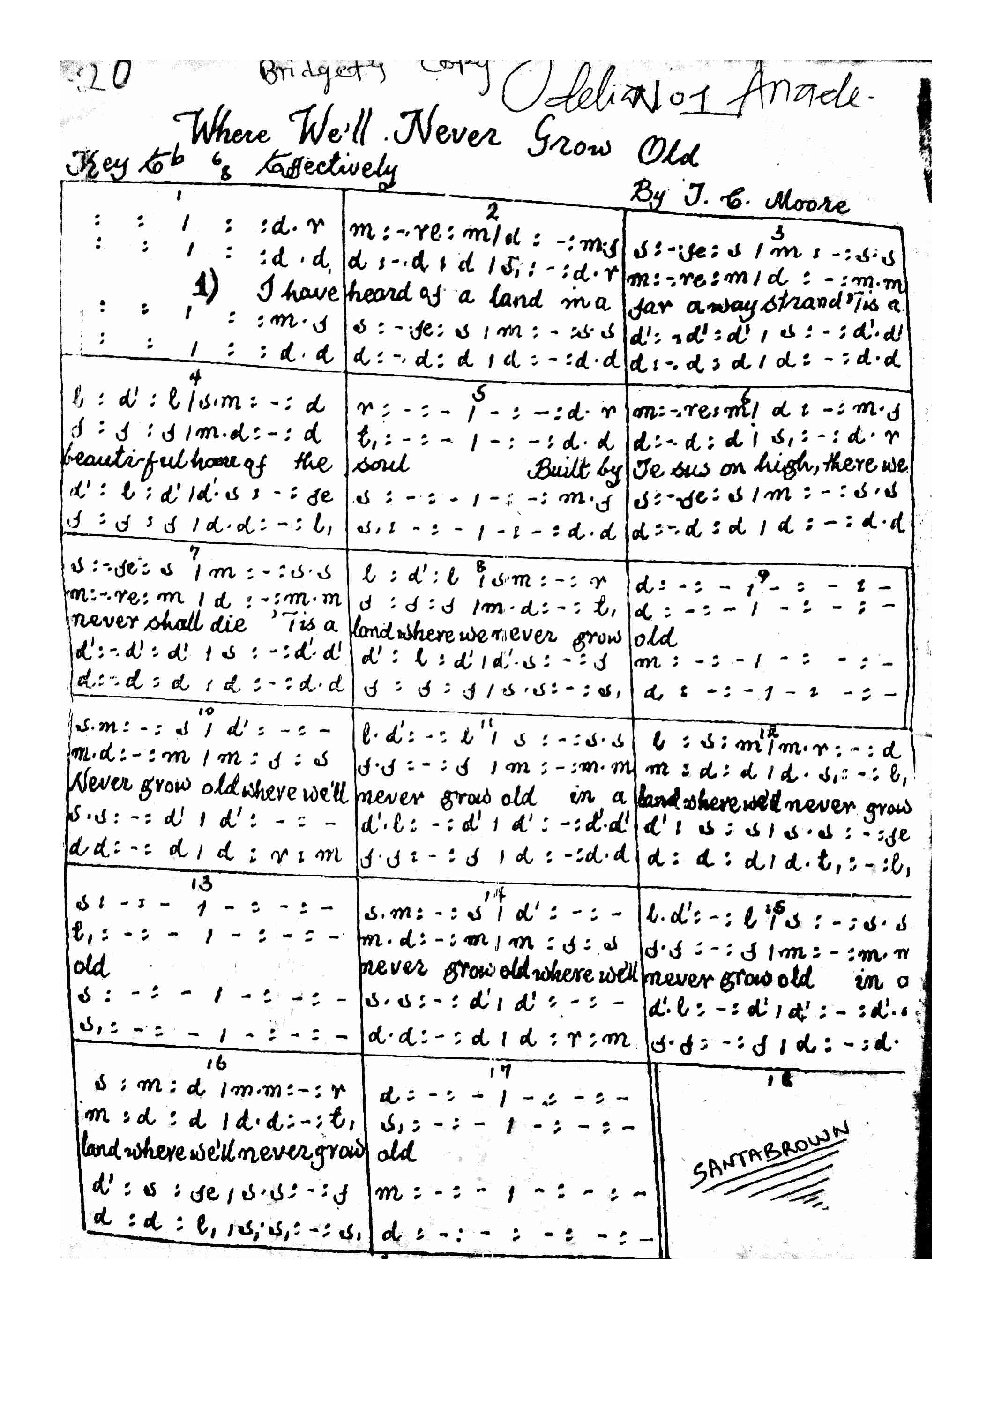 20 Bridget's Copy
Where We'll Never Grow Old
6/8 Effectively
By J. C. Moore
1 2 3
: : / : :d.r m:-.re:m/d : -:m.f s:-.fe:s /m : -:s.s
: : / : :d.d d :-.d : d /s, : -:d.r m:-.re:m/d : -:m.m
1) I have heard of a land in a far away strand 'Tis a
: : / : :m.f s :-.fe: s /m : -:s.s d':-.d':d' / s : -:d'.d'
: : / : :d.d d:-.d:d /d : -:d.d d:-.d:d /d : -:d.d
4 5 6
l : d' : l /s.m : -: d r : - : - / - : -:d.r m:-.re:m/ d : -:m.f
f : f : f /m.d:-: d t, : - : - / - : -:d.d d:-.d:d / s, : -:d.r
beautiful home of the soul Built by Jesus on high, there we
d' : l : d' /d'.s : -: fe s : - : - / - : -:m.f s:-.fe:s /m : -:s.s
f : f : f /d.d: -: l, s, : - : - / - : -:d.d d:-.d:d /d : -:d.d
7 8 9
s:-.fe:s /m : -:s.s l : d':l /s.m : -: r d: -: - / - : - : -
m:-.re:m /d : -:m.m f : f:f /m.d:-: t, d : -: - / - : - : -
never shall die 'Tis a land where we never grow old
d':-.d':d' / s : -:d'.d' d' : l : d'/d'.s: -: f m : -: - / - : - : -
d:-.d:d /d : -:d.d f : f:f /s.s:-:s, d : -: - / - : - : -
10 11 12
s.m : -: s / d' : -: - l.d': -: l / s : -:s.s l : s:m/m.r: -:d
m.d: -:m /m : f : s f.f: -: f /m : -:m.m m : d:d /d.s,: -: l,
Never grow old where we'll never grow old in a land where we'll never grow
s.s : -: d' / d' : -: - d'.l: -:d' / d' : -:d'.d' d' : s : s/s.s: -:fe
d.d: -: d / d : r : m f.f: -: f / d : -:d.d d: d: d/d.t,: -:l,
13 14 15
s : - : - / - : -: - s.m: -:s / d' : -: - l.d': -: l /s : -:s.s
t, : -: - / - : -: - m.d:-:m/m : f: s f.f: -: f /m : -:m.m
old never grow old where we'll never grow old in a
s : -: - / - : -: - s.s: -:d'/ d' : -: - d'.l: -:d' / d' : -:d'.
s, : -: - / - : -: - d.d: -:d /d : r:m f.f: -: f / d : -:d.
16 17 18
s : m : d /m.m: -: r d: -: - / - : -: -
m : d : d /d.d: -: t, s, : -: - / - : -: -
land where we'll never grow old
d' : s : fe /s.s: -: f m : -: - / - : -: -
d : d : l, /s,.s,: -: s, d : -: - : - : -: -
SANTABROWN